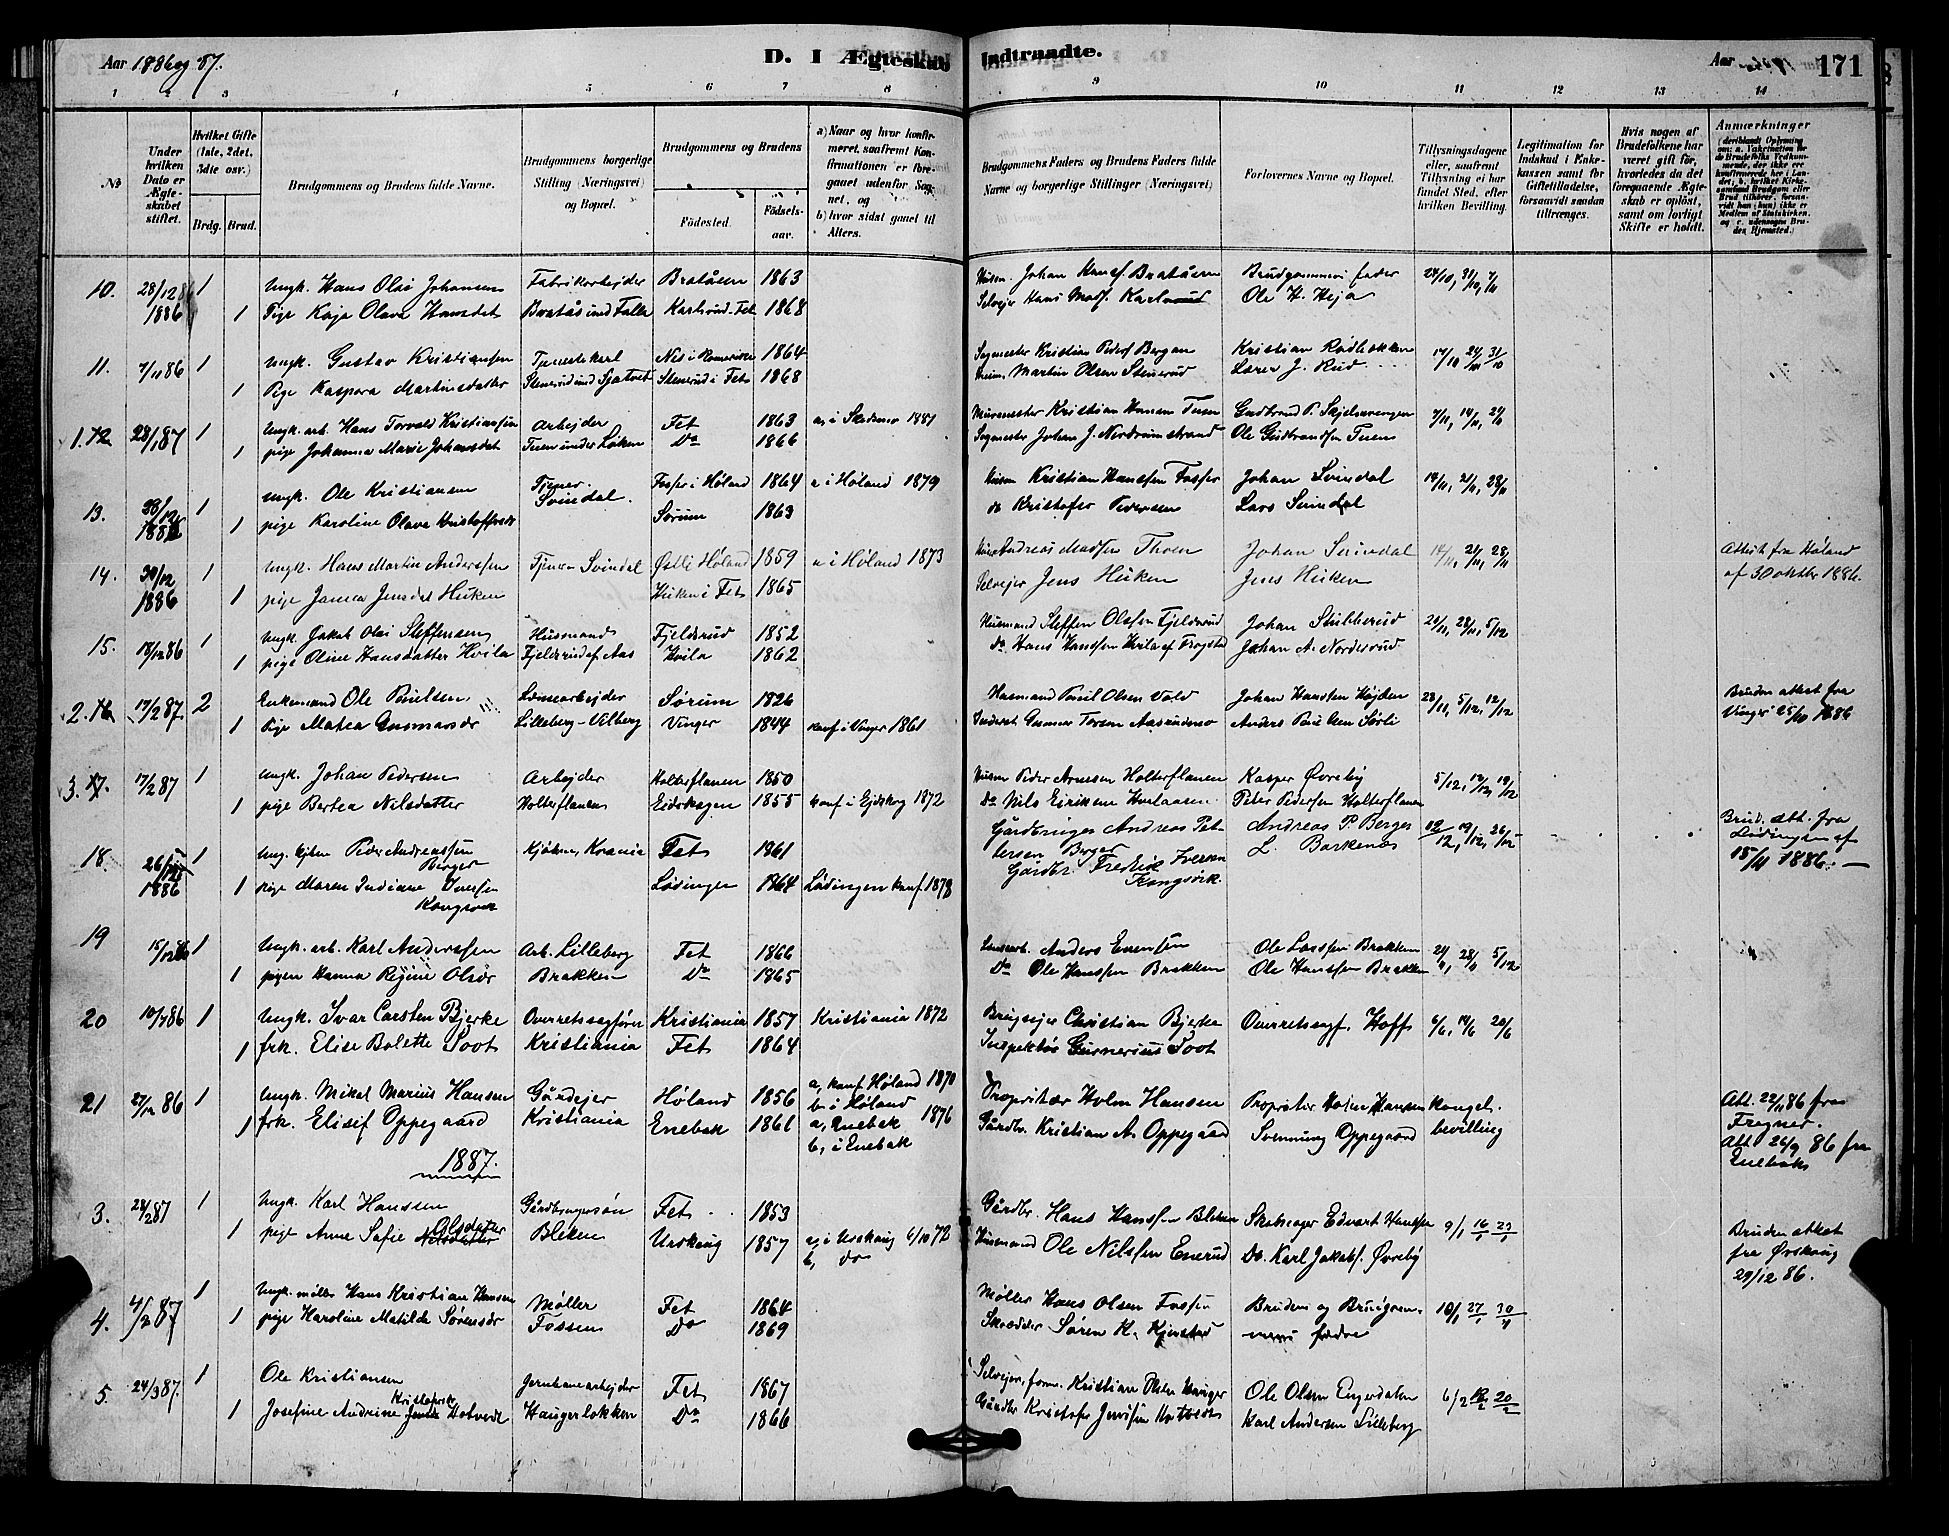 Aar 1886 og 87.
D. I Ægteskab Indtraadte.
Aar
171
1 2 3 4 5 6 7 8 9 10 11 12 13 14
No
Under hvilken Dato er Ægteskabet stiftet.
Hvilket Gifte (1ste, 2det, 3die osv.)
Brdg. Brud.
Brudgommens og Brudens fulde Navne.
Brudgommens borgerlige Stilling (Næringsvei) og Bopæl.
Brudgommens og Brudens
Fødested.
Fødselsaar.
a) Naar og hvor konfirmeret, saafremt Konfirmationen er foregaaet udenfor Sognet, og
b) hvor sidst gaaet til Alters.
Brudgommens Faders og Brudens Faders fulde Navne og borgerlige Stillinger (Næringsvei)
Forlovernes Navne og Bopæl.
Tillysningsdagene eller, saafremt Tillysning ei har fundet Sted, efter hvilken Bevilling.
Legitimation for Indskud i Enkekassen samt for Giftetilladelse, forsaavidt saadan tiltrænges.
Hvis nogen af Brudefolkene har været gift før, hvorledes da det foregaaende Ægteskab er opløst, samt om lovligt Skifte er holdt.
Anmærkninger
10. 28/12 86 1 Ungk. Hans Olai Johansen Fabrikarbejder Bratåsen 1863 Husm. Johan Hansf. Bratåsen Brudgommens fader 24/10, 31/10, 7/11
1886 1 Pige Kaja Olava Hansdat Bratås und Falla Karlsrud-Fet 1868 Selvejer Hans Mats. Karlsrud Ole H. Heja
11. 7/11 86 1 Ungk. Gustav Kristiansen Tjenestekarl Nes i Romerike 1864 Sagmester Kristian Peders Bergan Kristian Rødløkken 17/10 24/10 31/10
1 Pige Kaspara Martinsdatter Stenerud und Sjatvet Stenerud i Fet 1868 Husm. Martin Olsen Stenerud Lærer J. Rud
1.12 28/1 87 1 Ungk. arb. Hans Torvald Kristiansen Arbejder Fet 1863 a, i Skedsmo 1881 Murmester Kristian Hansen Tuen Gudbrand P. Skjelverengen 7/11, 14/11, 21/11
1 pige Johanna Marie Johansdat Tuen under Løken Do 1866 Sagmester Johan J. Nordrumstrand Ole Gudbrandsen Tuen
13. 30/12 1886 1 Ungk. Ole Kristiansen Tjener Svindal. Fosser i Høland 1864 a i Høland 1879 Husm Kristian Hansen Fosser Johan Svindal 14/11, 21/11, 28/11
1 pige Karoline Olava Kristoffersdr Sørum 1863 do Kristofer Pedersen Lars Svindal
14. 30/12 1886 1 Ungk. Hans Martin Anderssen Tjener Svindal Østli Høland 1859 a i Høland 1873 Husm Andreas Madsen Thoen Johan Svindal 14/11, 21/11, 28/11 Attest fra Høland
1 pige Janna Jensdat Huken Huken i Fet 1865 Selvejer Jens Huken Jens Huken af 30 oktbr 1886.
15. 18/12 86 1 Ungk. Jakob Olai Steffensen Husmand Fjeldsrud 1852 Husmand Steffen Olsen Fjeldsrud Johan Stubberud 21/11, 28/11, 5/12
1 pige Oline Hansdatter Hvila Fjeldsrud af Aas Hvila 1862 do Hans Hansen Hvila af Frogstad Johan A. Norderud
2.16 17/2 87 2 Enkemand Ole Paulsen Lænsearbejder Sørum 1826 Husmand Paul Olsen Vold Johan Hansen Højden 28/11, 5/12, 12/12 Bruden attest fra
1 Pige Matea Gunnarsdr Lilleberg-Velberg Vinger 1844 konf i Vinger 1861 Inderst Gunner Torsen Aasrudmo Anders Paulsen Sørli Vinger 25/10 1886
3.17. 17/2 87 1 Ungk. Johan Pedersen Arbejder Holterflanen 1850 Husm Peder Arnesen Holterflanen Kasper Øvreby 5/12, 12/12, 19/12
1 pige Bertea Nilsdatter Holterflanen Eidskogen 1855 konf i Ejdskog 1872 Do Nils Eiriksen Peder Pedersen Holterflanen
18. 26/12 1886 1 Ung. Peder Andreassen Berger Fet 1861 Gårdbruger Andreas Petersen Berger Andreas P. Berger 12/12, 19/12, 26/12 Brud. att. fra
1 pige Maren Indiane Iversen Kongsvik Lødingen 1864 Lødingen konf. 1878 Gårdbr. Fredrik Iversen Kongsvik L. Barkenæs Lødingen af 15/11 1886.
19 15/12 86 1 Ungk. arb. Karl Anderssen Arb. Lilleberg Fet 1866 Anders Evensen Ole Larssen Brakken 21/11, 28/11 5/12
1 pigen Hanna Regine Olsdr Brakken Do 1865 Do Ole Hanssen Brakken Ole Hanssen Brakken
20 10/7 86 1 Ungk. Ivar Carsten Bjerke Overretssagfører Kristiania 1857 Kristiania 1872 Brugsejer Christian Bjerke Overretssagf. Hoff 6/6, 14/6 20/6
1 frk. Elise Bolette Soot Kristiania Fet 1864 Inspektør Gunnerius Soot
21 27/12 86 1 Ungk. Mikal Marius Hansen Gårdejer Høland 1856 a, konf. Høland 1870 b i Høland Proprietær Holm Hansen Proprietær Holm Hansen kongel. Att. 22/11 86 fra Frogner.
1 frk. Elisif Oppegaard Kristiania Enebak 1861 a, Enebak 1876 b, i Enebak Gårdbr. Kristian A. Oppegaard Svenning Oppegaard bevilling Att 26/9 86 fra Enebak
1887.
3. 28/2 87 1 Ungk. Karl Hanssen Gårdbrugersøn Fet 1853 Gårdbr. Hans Hanssen Bleken Skabsager Edvart Hansen 9/1 16/1 23/1 Bruden attest
1 pige Anne Sofie Olsdatter Bleken Urskoug 1857 a, i Urskoug 6/10 72 b, do Husmand Ole Nilssen Enerud Do. Karl Jakobs. Øvreby fra Ørskoug 29/12 86.
4. 4/2 87 1 Ungk. møller Hans Kristian Hansen Møller Fet 1864 Møller Hans Olsen Fossen Brudens og Brudgommens fædre 10/1 27/1 30/1
1 pige Karoline Matilde Sørensdr Fossen Do 1869 Skrædder Søren K. Kjinstad
5. 24/3 87. 1 Ole Kristiansen Jernbanearbejder Fet 1867 Selvejer, form. Kristian Olsen Hauger Ole Olsen Engerdalen 6/2 13/2 20/2
1 Josefine Andrine Kristofersdr Hotvedt Haugerløkken Do 1866 Gårdbr Kristofer Jensen Hotvedt Karl Andersen Lilleberg